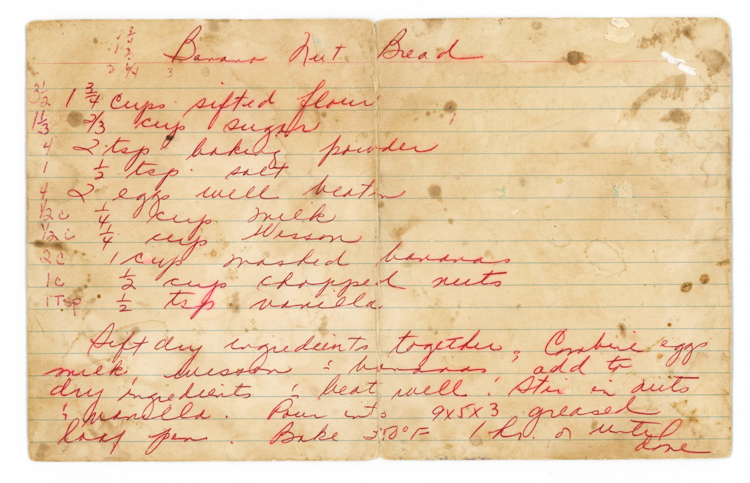 Banana Nut Bread
3 1/2 1 3/4 cups sifted flour
1 1/3 2/3 cup sugar
4 2 tsp baking powder
1 1/2 tsp salt
4 2 eggs well beaten
1/2 c 1/4 cup milk
1/2 c 1/4 cup Wesson
2c 1 cup mashed bananas
1c 1/2 cup chopped nuts
1 Tsp 1/2 tsp vanilla
Sift dry ingredients together; Combine eggs
milk, wesson & bananas add to
dry ingredients & beat well. Stir in nuts
& vanilla. Pour into 9x5x3 greased
loaf pan. Bake 350°F 1 hr. or until
done